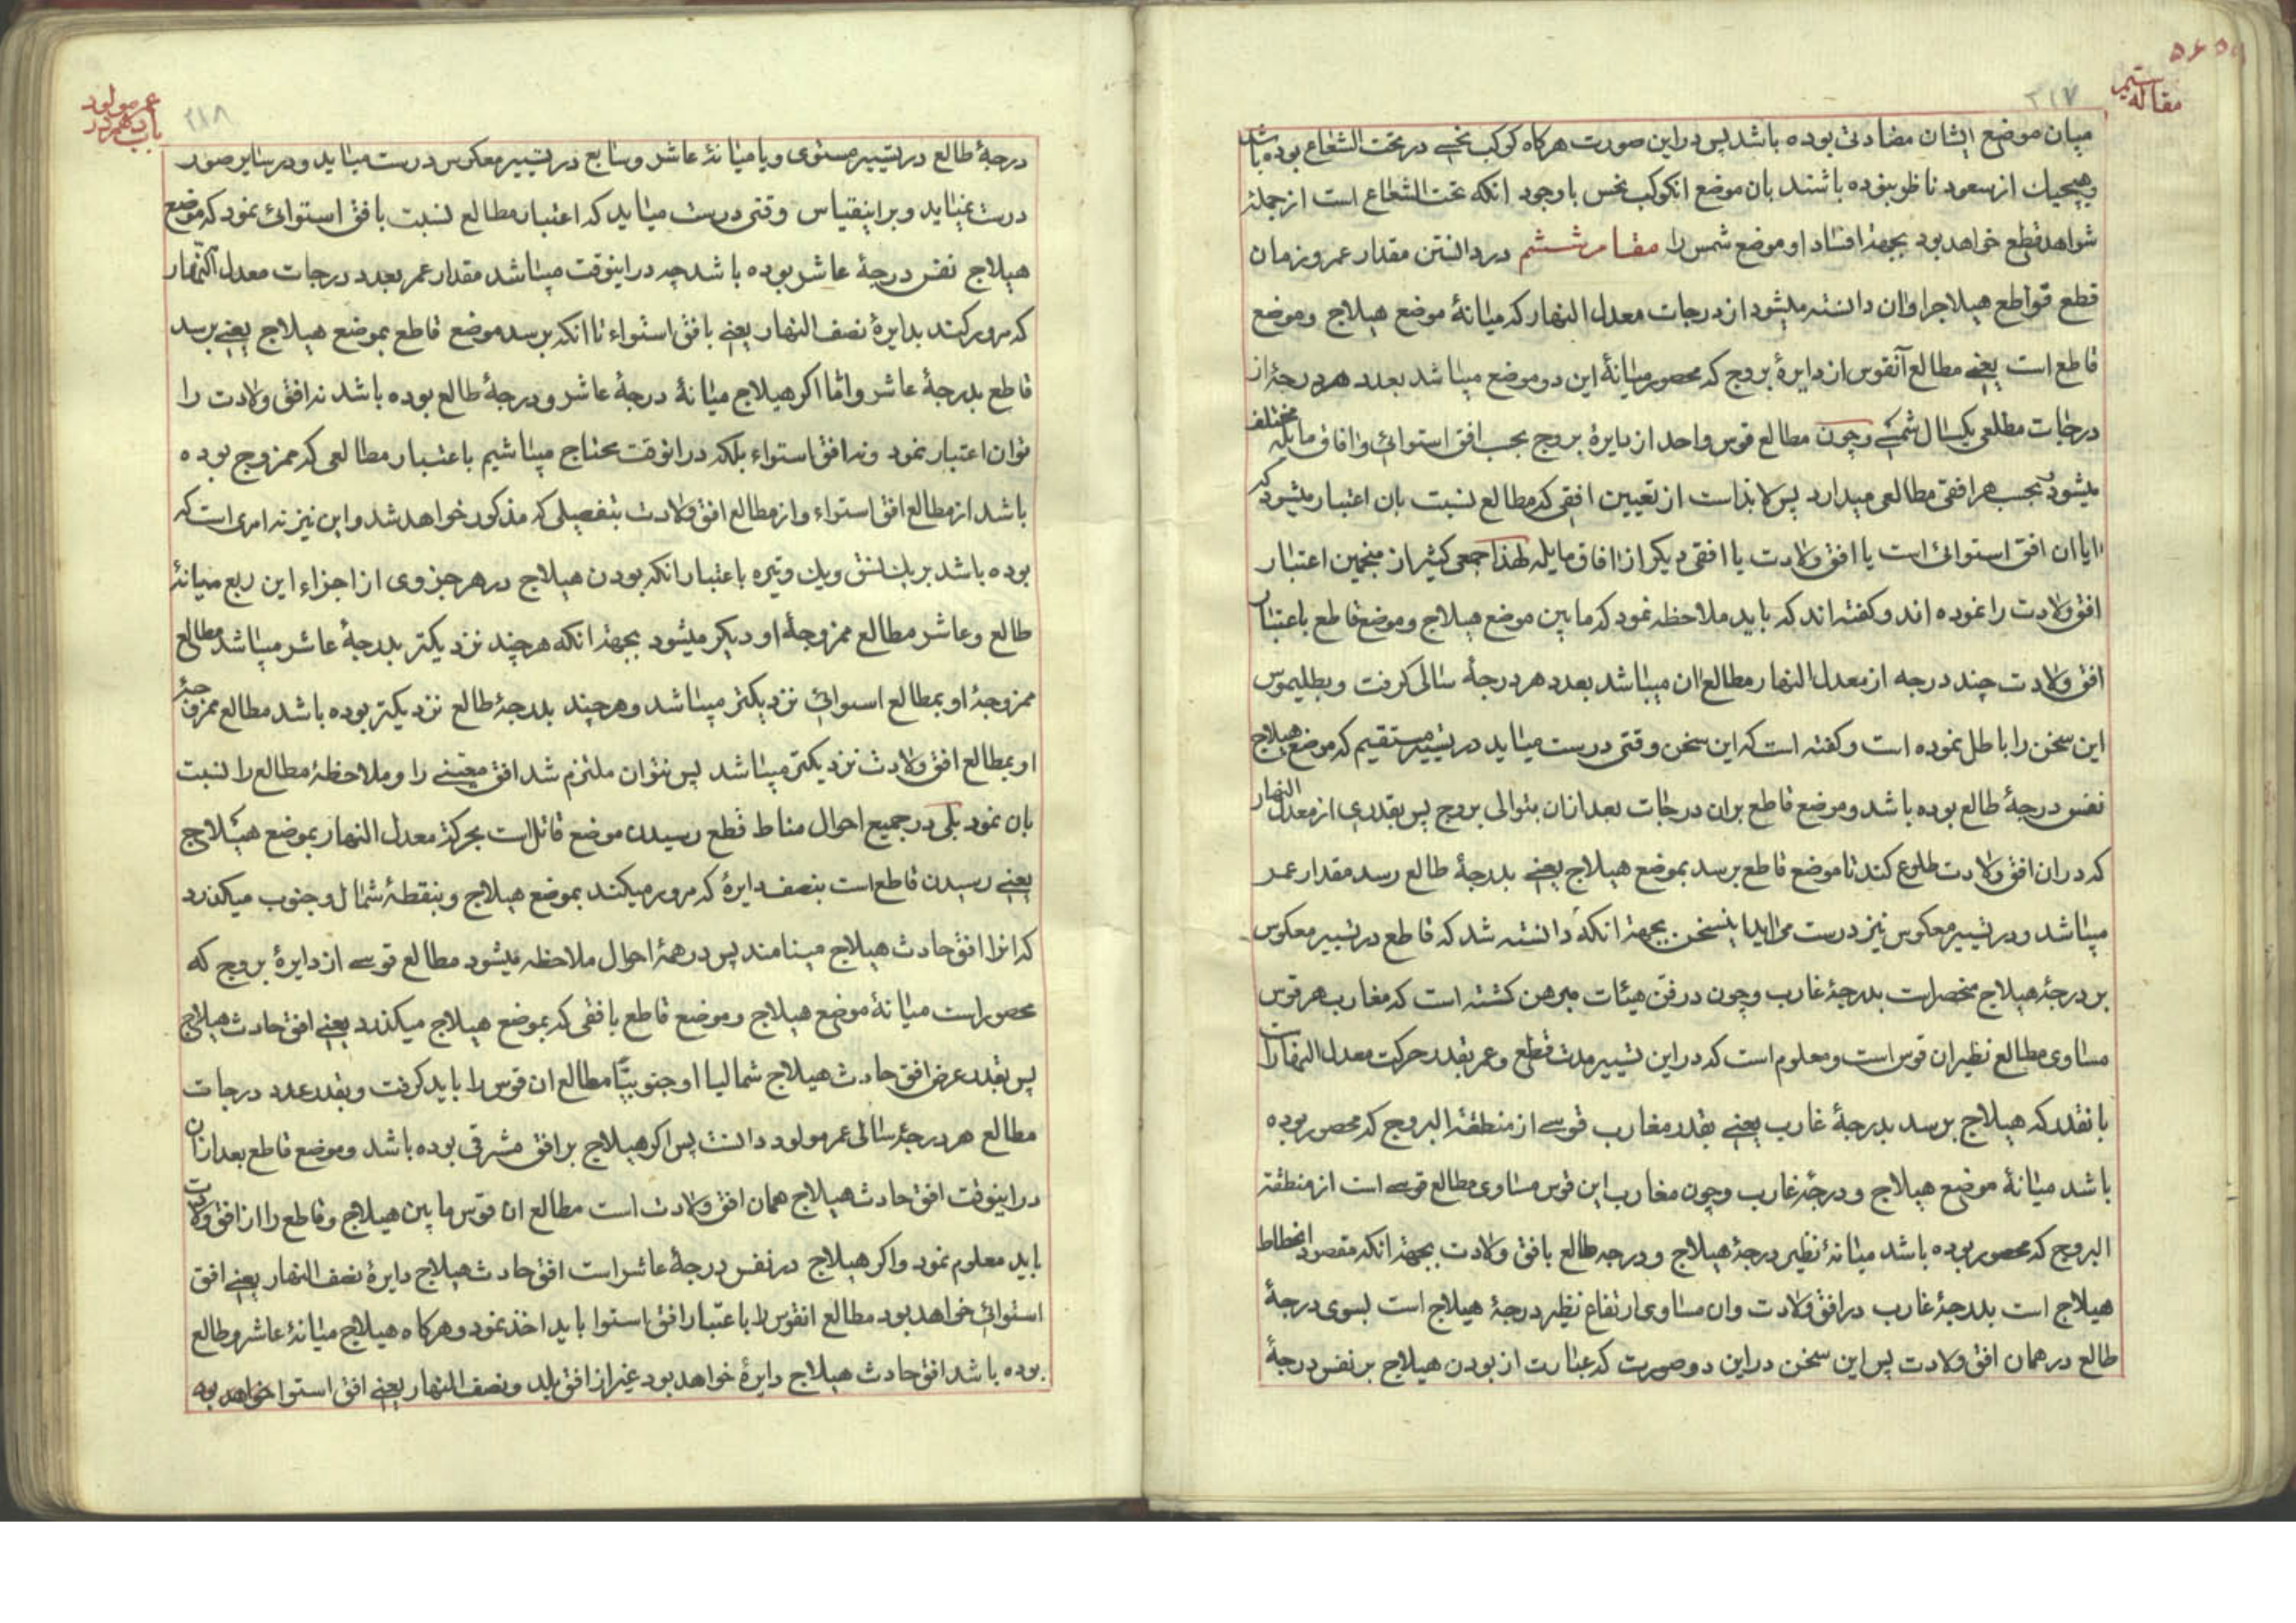 مقاله
۳۱۷
میان موضع ایشان مضادتی بوده باشد پس در این صورت هرکاه کوکب نحسی در تحت الشعاع بوده باشد
وهیچیک از سعود ناظر نبوده باشند بان موضع انکوکب نحس باوجود انکه تحت الشعاع است از جملهٔ
شواهد قطع خواهد بود بجهة افساد او موضع شمس را مقام ششم در دانستن مقدار عمر و زمان
قطع قواطع هیلاجرا وان دانسته میشود از درجات معدل النهار که میانهٔ موضع هیلاج وموضع
قاطع است یعنی مطالع آنقوس از دایرهٔ بروج که محصور میانهٔ این دو موضع میباشد بعدد هر درجهٔ از
درجات مطلعی یکسال شمسی وچون مطالع قوس واحد از دایرهٔ بروج بحسب افق استوائی وافاق مایله مختلف
میشود وبحسب هر افقی مطالعی میدارد پس لابد است از تعیین افقی که مطالع نسبت بان اعتبار میشود که
ایا ان افق استوائی است یا افق ولادت یا افقی دیکر از افاق مایله لهذا جمعی کثیر از منجمین اعتبار
افق ولادت را نموده اند وکفته اند که باید ملاحظه نمود که مابین موضع هیلاج وموضع قاطع باعتبار
افق ولادت چند درجه از معدل النهار مطالع ان میباشد بعدد هر درجهٔ سالی کرفت وبطلیموس
این سخن را باطل نموده است وکفته است که این سخن وقتی درست میاید در تسییر مستقیم که موضع هیلاج
نفس درجهٔ طالع بوده باشد وموضع قاطع بران درجات بعد ازان بتوالی بروج پس بقدری از معدل النهار
که در ان افق ولادت طلوع کند تا موضع قاطع برسد بموضع هیلاج یعنی بدرجهٔ طالع رسد مقدار عمر
میباشد ودر تسییر معکوس نیز درست می اید اینسخن بجهة انکه دانسته شد که قاطع در تسییر معکوس
بر درجهٔ هیلاج منحصر است بدرجهٔ غارب وچون در فن هیئات مبرهن کشته است که مغارب هر قوس
مساوی مطالع نظیر ان قوس است ومعلوم است که در این تسییر مدت قطع وعمر بقدر حرکت معدل النهار است
بانقدر که هیلاج برسد بدرجهٔ غارب یعنی بقدر مغارب قوسی از منطقة البروج که محصور بوده
باشد میانهٔ موضع هیلاج ودرجهٔ غارب وچون مغارب این قوس مساوی مطالع قوسی است از منطقة
البروج که محصور بوده باشد میانهٔ نظیر درجهٔ هیلاج ودرجه طالع بافق ولادت بجهة انکه مقصود انحطاط
هیلاج است بدرجهٔ غارب در افق ولادت وان مساوی ارتفاع نظیر درجهٔ هیلاج است بسوی درجهٔ
طالع در همان افق ولادت پس این سخن در این دو صورت که عبارت از بودن هیلاج بر نفس درجهٔ
عمر مولود
باب دهم در
۳۱۸
درجهٔ طالع در تسییر مستوی ویا میانهٔ عاشر وسابع در تسییر معکوس درست میاید ودر سایر صور
درست نمیاید وبر اینقیاس وقتی درست میاید که اعتبار مطالع نسبت بافق استوائی نمود که موضع
هیلاج نفس درجهٔ عاشر بوده باشد چه در اینوقت میباشد مقدار عمر بعدد درجات معدل النهار
که مرور کند بدایرهٔ نصف النهار یعنی بافق استواء تا انکه برسد موضع قاطع بموضع هیلاج یعنی برسد
قاطع بدرجهٔ عاشر واما اکر هیلاج میانهٔ درجهٔ عاشر ودرجهٔ طالع بوده باشد نه افق ولادت را
توان اعتبار نمود ونه افق استواء بلکه در انوقت محتاج میباشیم باعتبار مطالعی که ممزوج بوده
باشد از مطالع افق استواء واز مطالع افق ولادت بتفصیلی که مذکور خواهد شد واین نیز نه امری است که
بوده باشد بریک نسق ویک وتیره باعتبار انکه بودن هیلاج در هر جزوی از اجزاء این ربع میانهٔ
طالع وعاشر مطالع ممزوجهٔ او دیکر میشود بجهة انکه هرچند نزدیکتر بدرجهٔ عاشر میباشد مطالع
ممزوجهٔ او بمطالع استوائی نزدیکتر میباشد وهرچند بدرجهٔ طالع نزدیکتر بوده باشد مطالع ممزوجهٔ
او بمطالع افق ولادت نزدیکتر میباشد پس نتوان ملتزم شد افق معینی را وملاحظهٔ مطالع را نسبت
بان نمود بلی در جمیع احوال مناط قطع رسیدن موضع قاتل است بحرکة معدل النهار بموضع هیلاج
یعنی رسیدن قاطع است بنصف دایرهٔ که مرور میکند بموضع هیلاج وبنقطهٔ شمال وجنوب میکذرد
که انرا افق حادث هیلاج مینامند پس در همهٔ احوال ملاحظه میشود مطالع قوسی از دایرهٔ بروج که
محصور است میانهٔ موضع هیلاج وموضع قاطع بافقی که بموضع هیلاج میکذرد یعنی افق حادث هیلاج
پس بقدر عرض افق حادث هیلاج شمالیا او جنوبیا مطالع ان قوس را باید کرفت وبقدر عدد درجات
مطالع هر درجهٔ سالی عمر مولود دانست پس اکر هیلاج بر افق مشرقی بوده باشد وموضع قاطع بعد ازان
در اینوقت افق حادث هیلاج همان افق ولادت است مطالع ان قوس مابین هیلاج وقاطع را از افق ولادت
باید معلوم نمود واکر هیلاج در نفس درجهٔ عاشر است افق حادث هیلاج دایرهٔ نصف النهار یعنی افق
استوائی خواهد بود مطالع انقوس را باعتبار افق استوا باید اخذ نمود وهرکاه هیلاج میانهٔ عاشر وطالع
بوده باشد افق حادث هیلاج دایرهٔ خواهد بود غیر از افق بلد ونصف النهار یعنی افق استوا خواهد بود